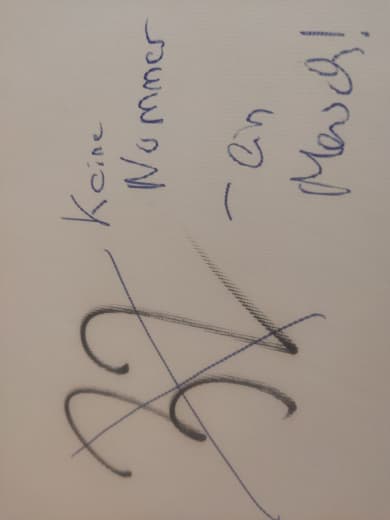 32
Keine
Nummer
– ein
Mensch!